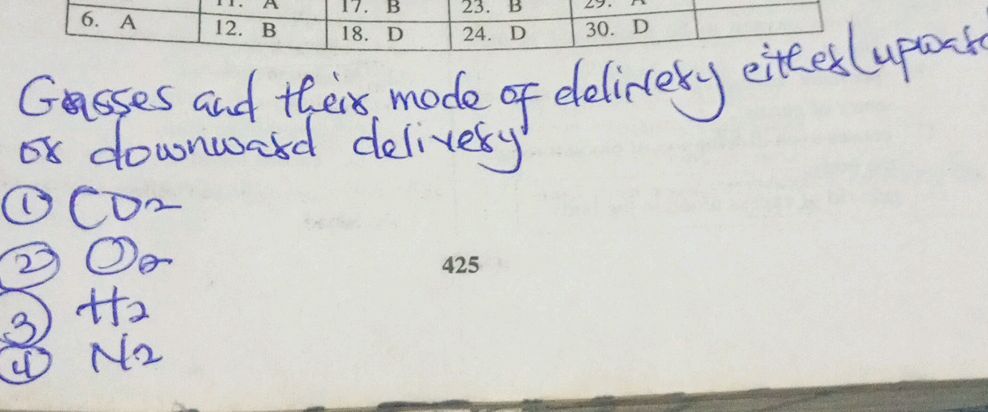 11. A 17. B 23. B 29. A
6. A 12. B 18. D 24. D 30. D
Gasses and their mode of delivery either (upward
or downward delivery
① CO2
② O2
③ H2
④ N2
425